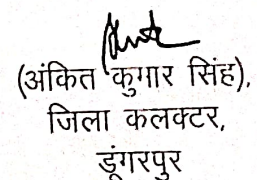 (अंकित कुमार सिंह),
जिला कलक्टर,
डूंगरपुर